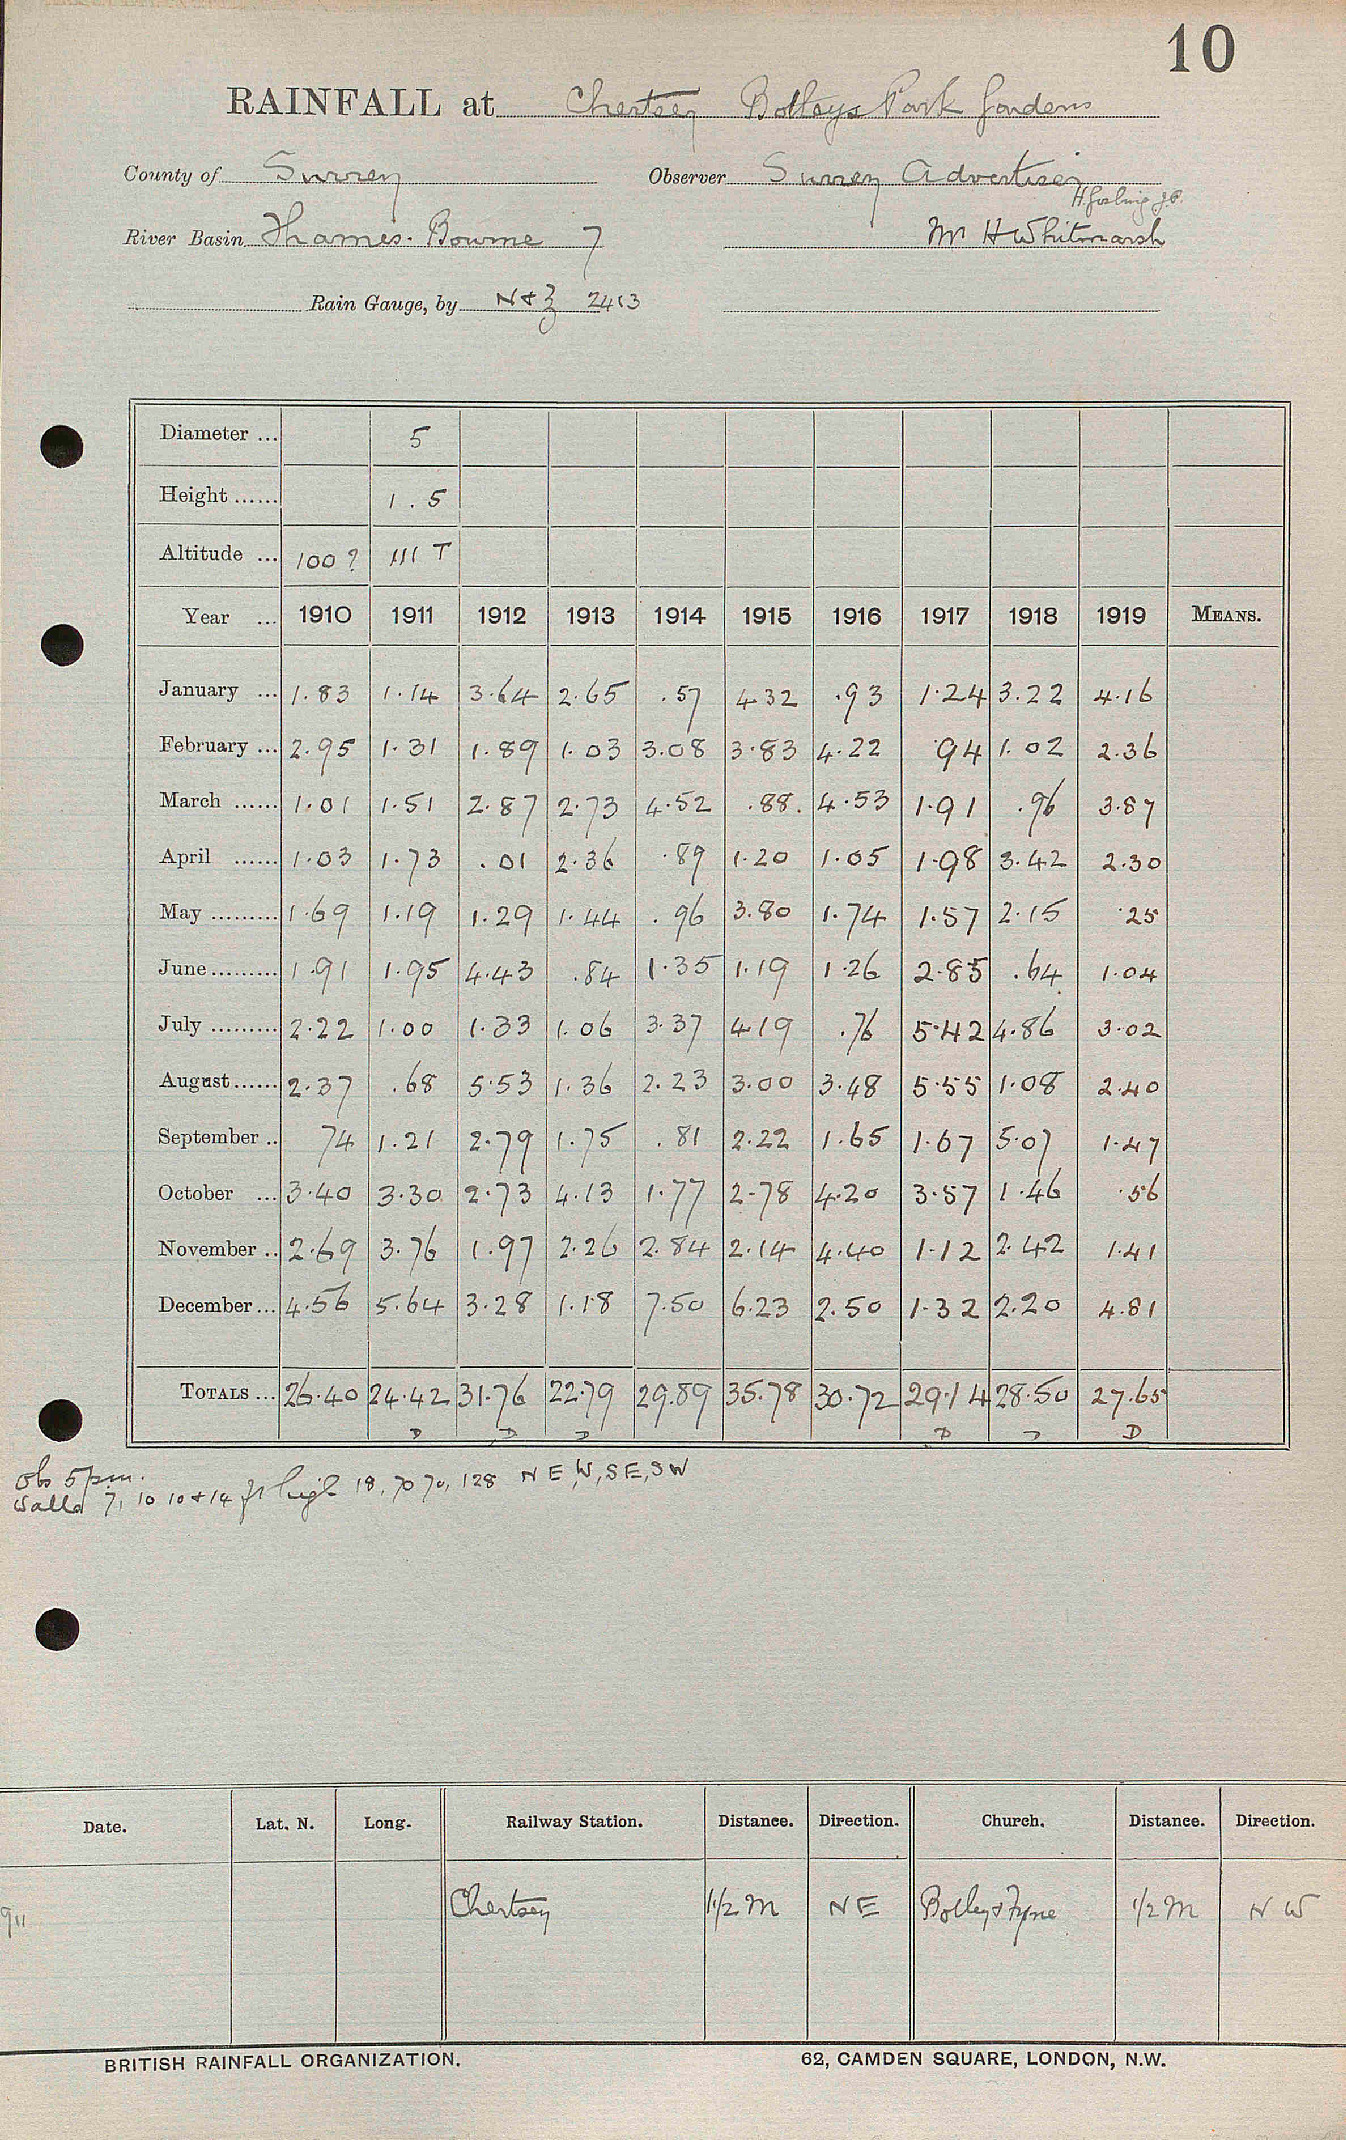 10
RAINFALL at Chertsey Botleys Park Gardens
County of Surrey Observer Surrey Advertiser
H. Gosling J.P.
River Basin Thames. Bourne 7 Mr H Whitmarsh
Rain Gauge, by N & Z 2413
Diameter ... 5
Height ...... 1.5
Altitude ... 100? 111 T
Year ... 1910 1911 1912 1913 1914 1915 1916 1917 1918 1919 MEANS.
January ... 1.83 1.14 3.64 2.65 .57 4.32 .93 1.24 3.22 4.16
February ... 2.95 1.31 1.89 1.03 3.08 3.83 4.22 .94 1.02 2.36
March ...... 1.01 1.51 2.87 2.73 4.52 .88 4.53 1.91 .96 3.87
April ...... 1.03 1.73 .01 2.36 .89 1.20 1.05 1.98 3.42 2.30
May ......... 1.69 1.19 1.29 1.44 .96 3.80 1.74 1.57 2.15 .25
June ......... 1.91 1.95 4.43 .84 1.35 1.19 1.26 2.85 .64 1.04
July ......... 2.22 1.00 1.33 1.06 3.37 4.19 .76 5.42 4.86 3.02
August ...... 2.37 .68 5.53 1.36 2.23 3.00 3.48 5.55 1.08 2.40
September .. 74 1.21 2.79 1.75 .81 2.22 1.65 1.67 5.07 1.47
October ... 3.40 3.30 2.73 4.13 1.77 2.78 4.20 3.57 1.46 .56
November .. 2.69 3.76 1.97 2.26 2.84 2.14 4.40 1.12 2.42 1.41
December ... 4.56 5.64 3.28 1.18 7.50 6.23 2.50 1.32 2.20 4.81
TOTALS ... 26.40 24.42 31.76 22.79 29.89 35.78 30.72 29.14 28.50 27.65
D D D D D D
Obs 5pm.
Walls 7, 10 10 & 14 ft high 18, 70 70, 128 N E, W, S E, S W
Date. Lat. N. Long. Railway Station. Distance. Direction. Church. Distance. Direction.
911 Chertsey 1 1/2 M NE Botleys & Lyne 1/2 M N W
BRITISH RAINFALL ORGANIZATION. 62, CAMDEN SQUARE, LONDON, N.W.